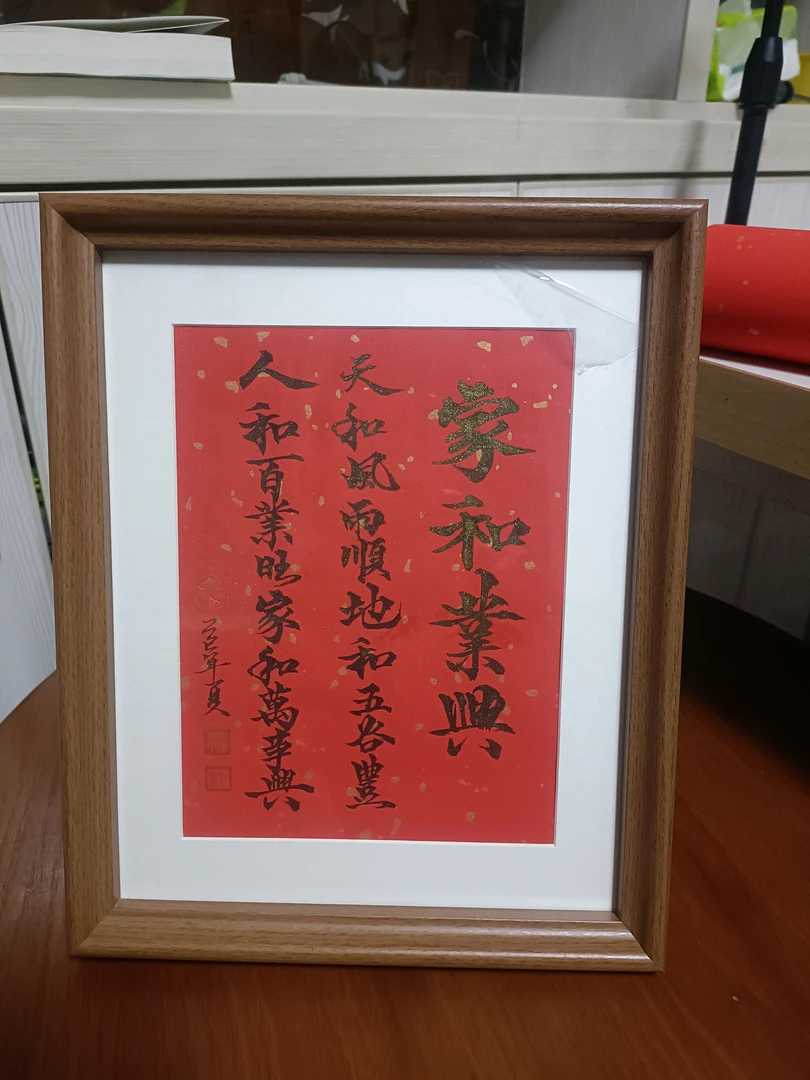 家和業興
天和風雨順地和五谷豐
人和百業旺家和萬事興